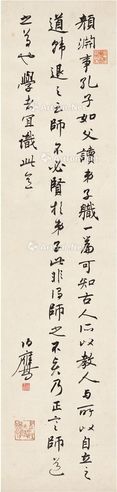 顏淵事孔子如父讀弟子職一篇可知古人所以教人與所以自立之
道韓退之言師不必賢於弟子此非得師之不矣乃正言師道
之尊也學者宜識此意